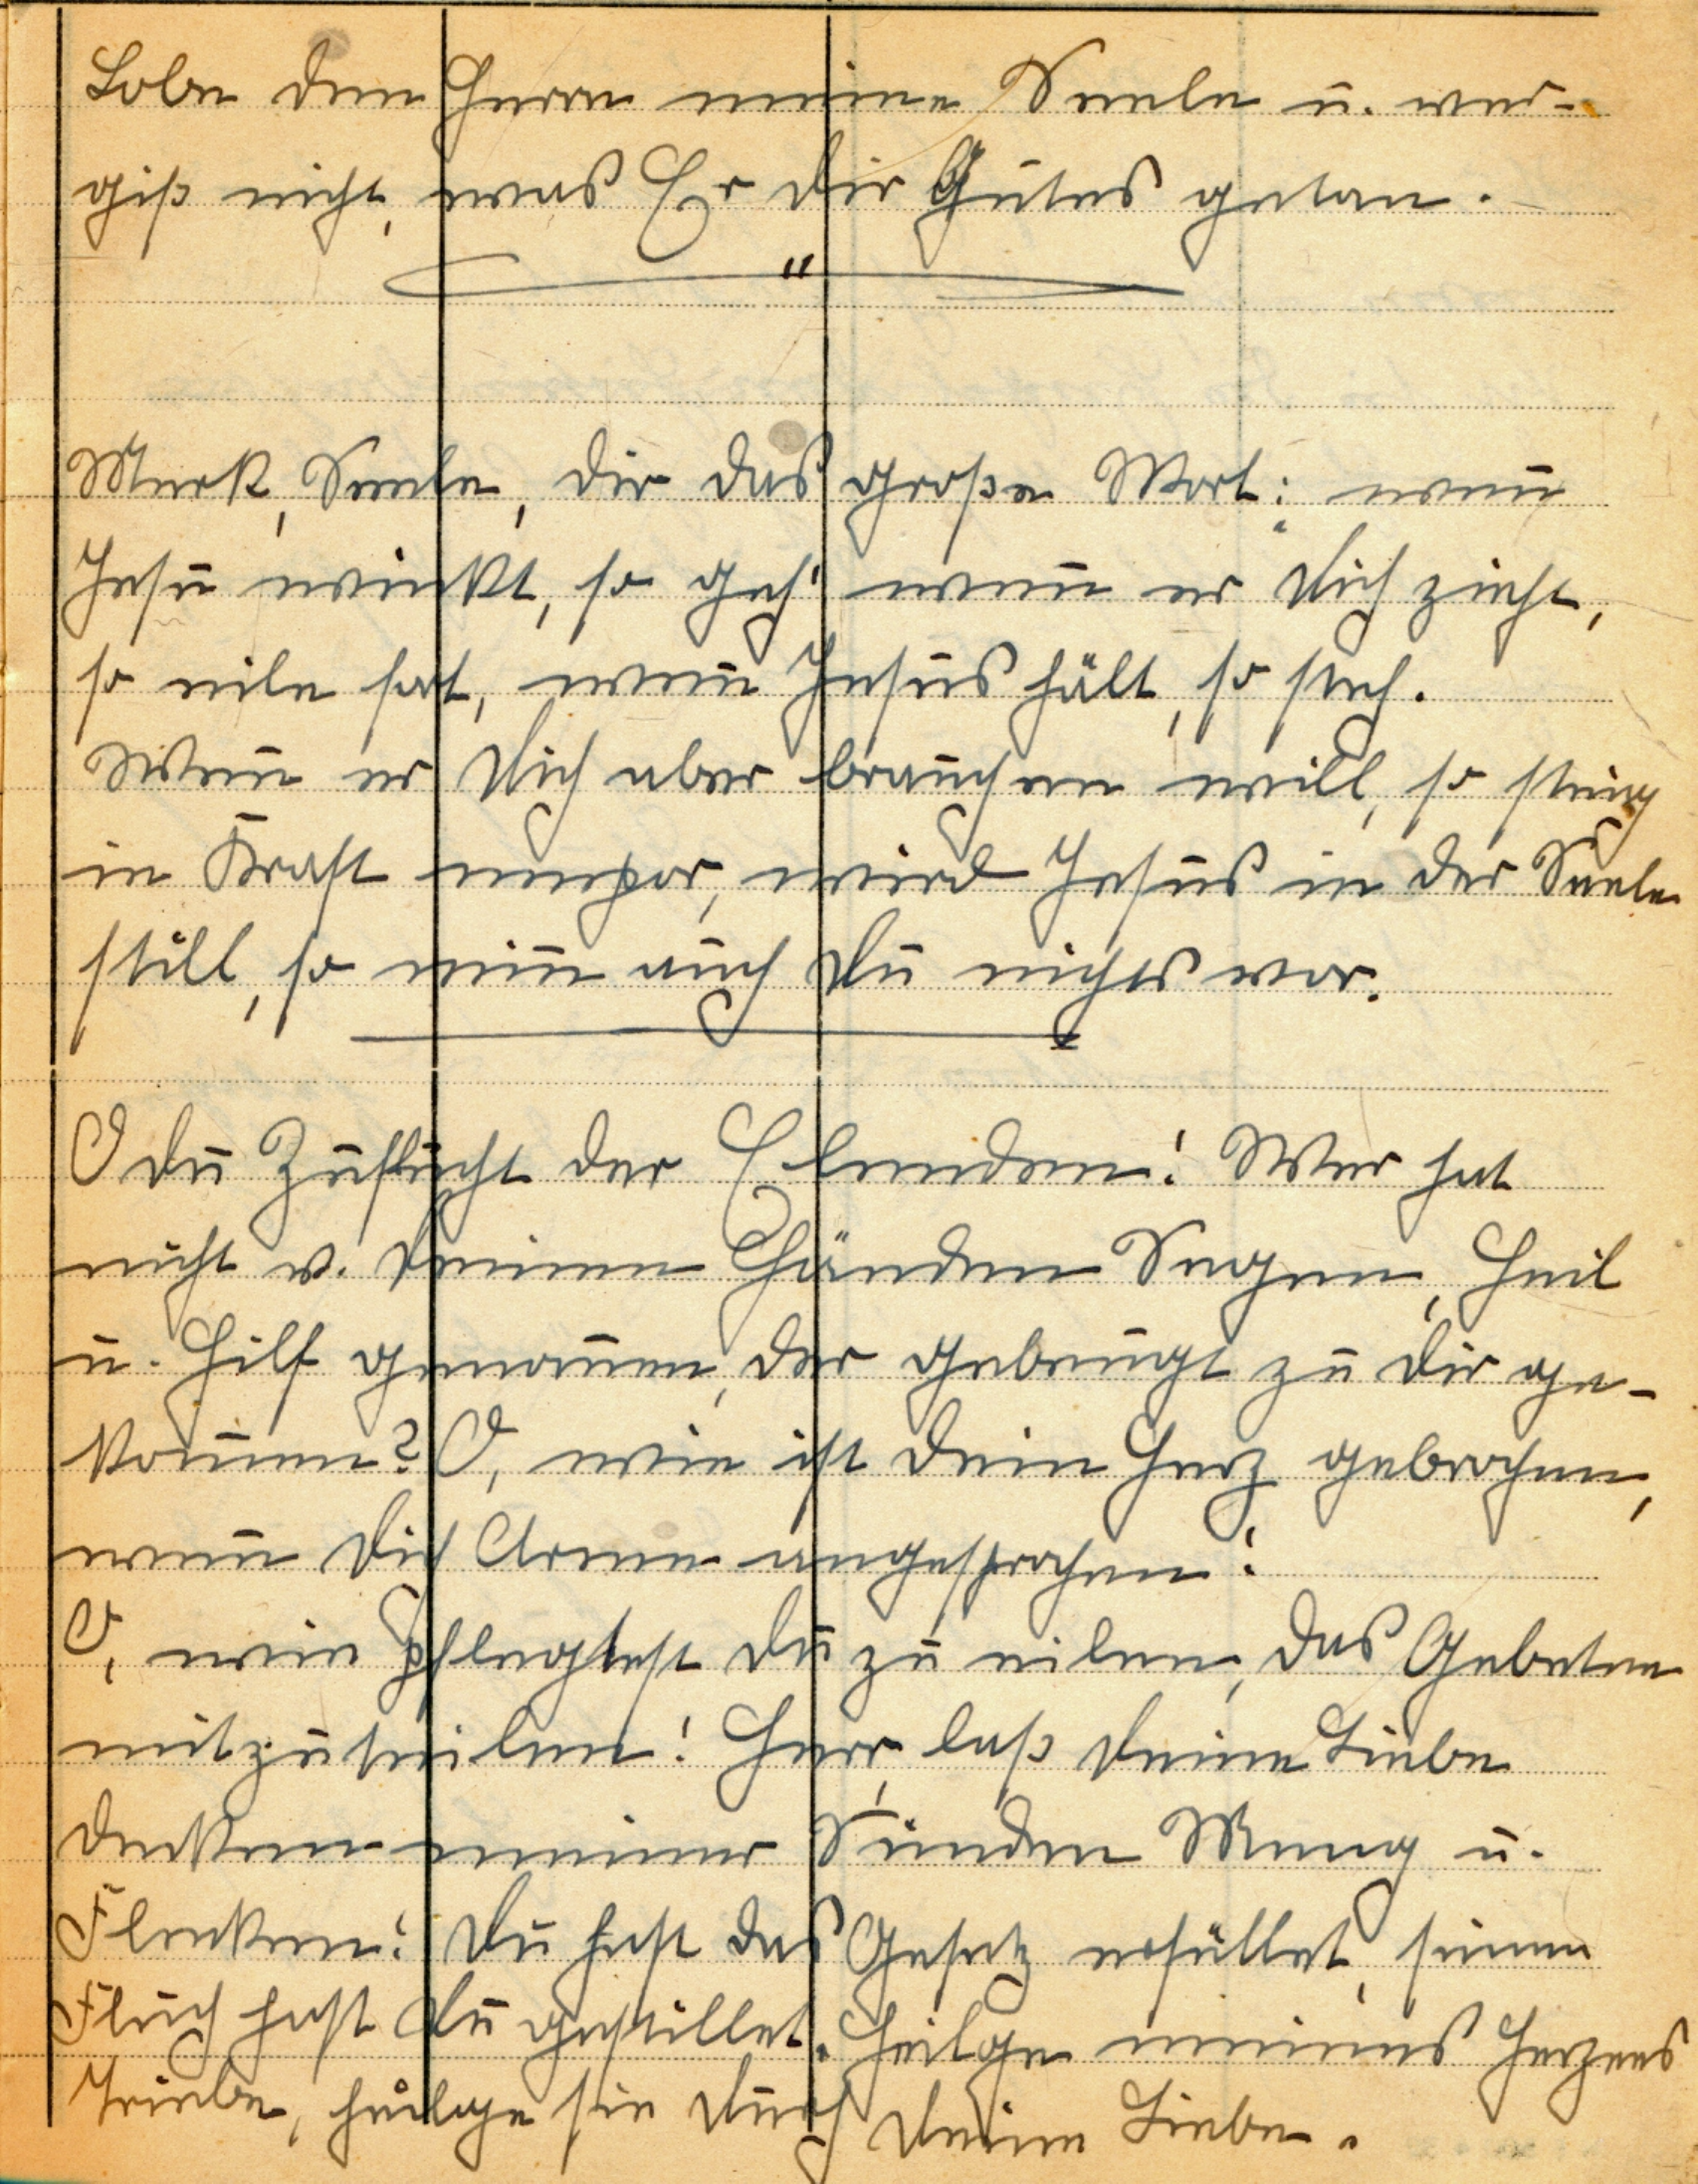 Lobe den Herrn meine Seele u. ver-
giß nicht, was Er dir Gutes getan.
Merk, Seele, dir das große Wort: wenn̄
Jesu winkt, so geh! wen̄ er dich zieht,
so eile fort, wen̄ Jesus hält, so steh.
Wen̄ er dich aber brauchen will, so steig
in Kraft empor, wird Jesus in der Seele
still, so nim̄ auch du nichts vor.
O du Zuflucht der Elenden! Wer hat
nicht v. deinen Händen Segen, Heil
u. Hilf genom̄en, der gebeugt zu dir ge-
kom̄en? O, wie ist dein Herz gebrochen,
wen̄ dich Arme angesprochen!
O, wie pflegtest du zu eilen, das Gebetene
mitzuteilen! Herr, laß deine Liebe
decken meiner Sünden Meng u.
Flecken! Du hast das Gesetz erfüllet, seinen
Fluch hast du gestillet. Heilge meines Herzens
Triebe, heilge sie durch deine Liebe.